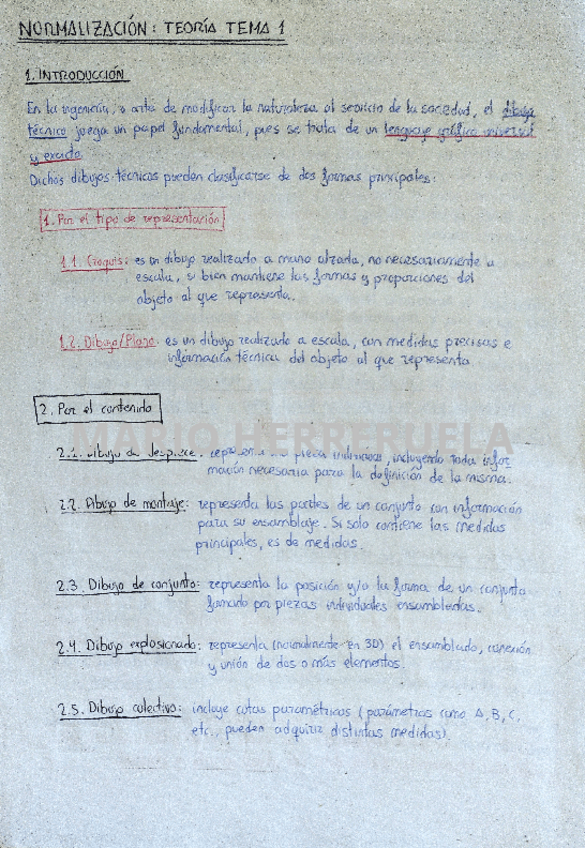 NORMALIZACIÓN: TEORÍA TEMA 1
1. INTRODUCCIÓN
En la ingeniería, o arte de modificar la naturaleza al servicio de la sociedad, el dibujo
técnico juega un papel fundamental, pues se trata de un lenguaje gráfico universal
y exacto.
Dichos dibujos técnicos pueden clasificarse de dos formas principales:
1. Por el tipo de representación
1.1. Croquis: es un dibujo realizado a mano alzada, no necesariamente a
escala, si bien mantiene las formas y proporciones del
objeto al que representa.
1.2. Dibujo/Plano: es un dibujo realizado a escala, con medidas precisas e
información técnica del objeto al que representa
2. Por el contenido
MARIO HERRERUELA
2.1. Dibujo de despiece: representa una pieza individual, incluyendo toda infor
mación necesaria para la definición de la misma.
2.2. Dibujo de montaje: representa las partes de un conjunto con información
para su ensamblaje. Si solo contiene las medidas
principales, es de medidas.
2.3. Dibujo de conjunto: representa la posición y/o la forma de un conjunto
formado por piezas individuales ensambladas.
2.4. Dibujo explosionado: representa (normalmente en 3D) el ensamblado, conexión
y unión de dos o más elementos.
2.5. Dibujo colectivo: incluye cotas paramétricas (parámetros como A, B, C,
etc., pueden adquirir distintas medidas).